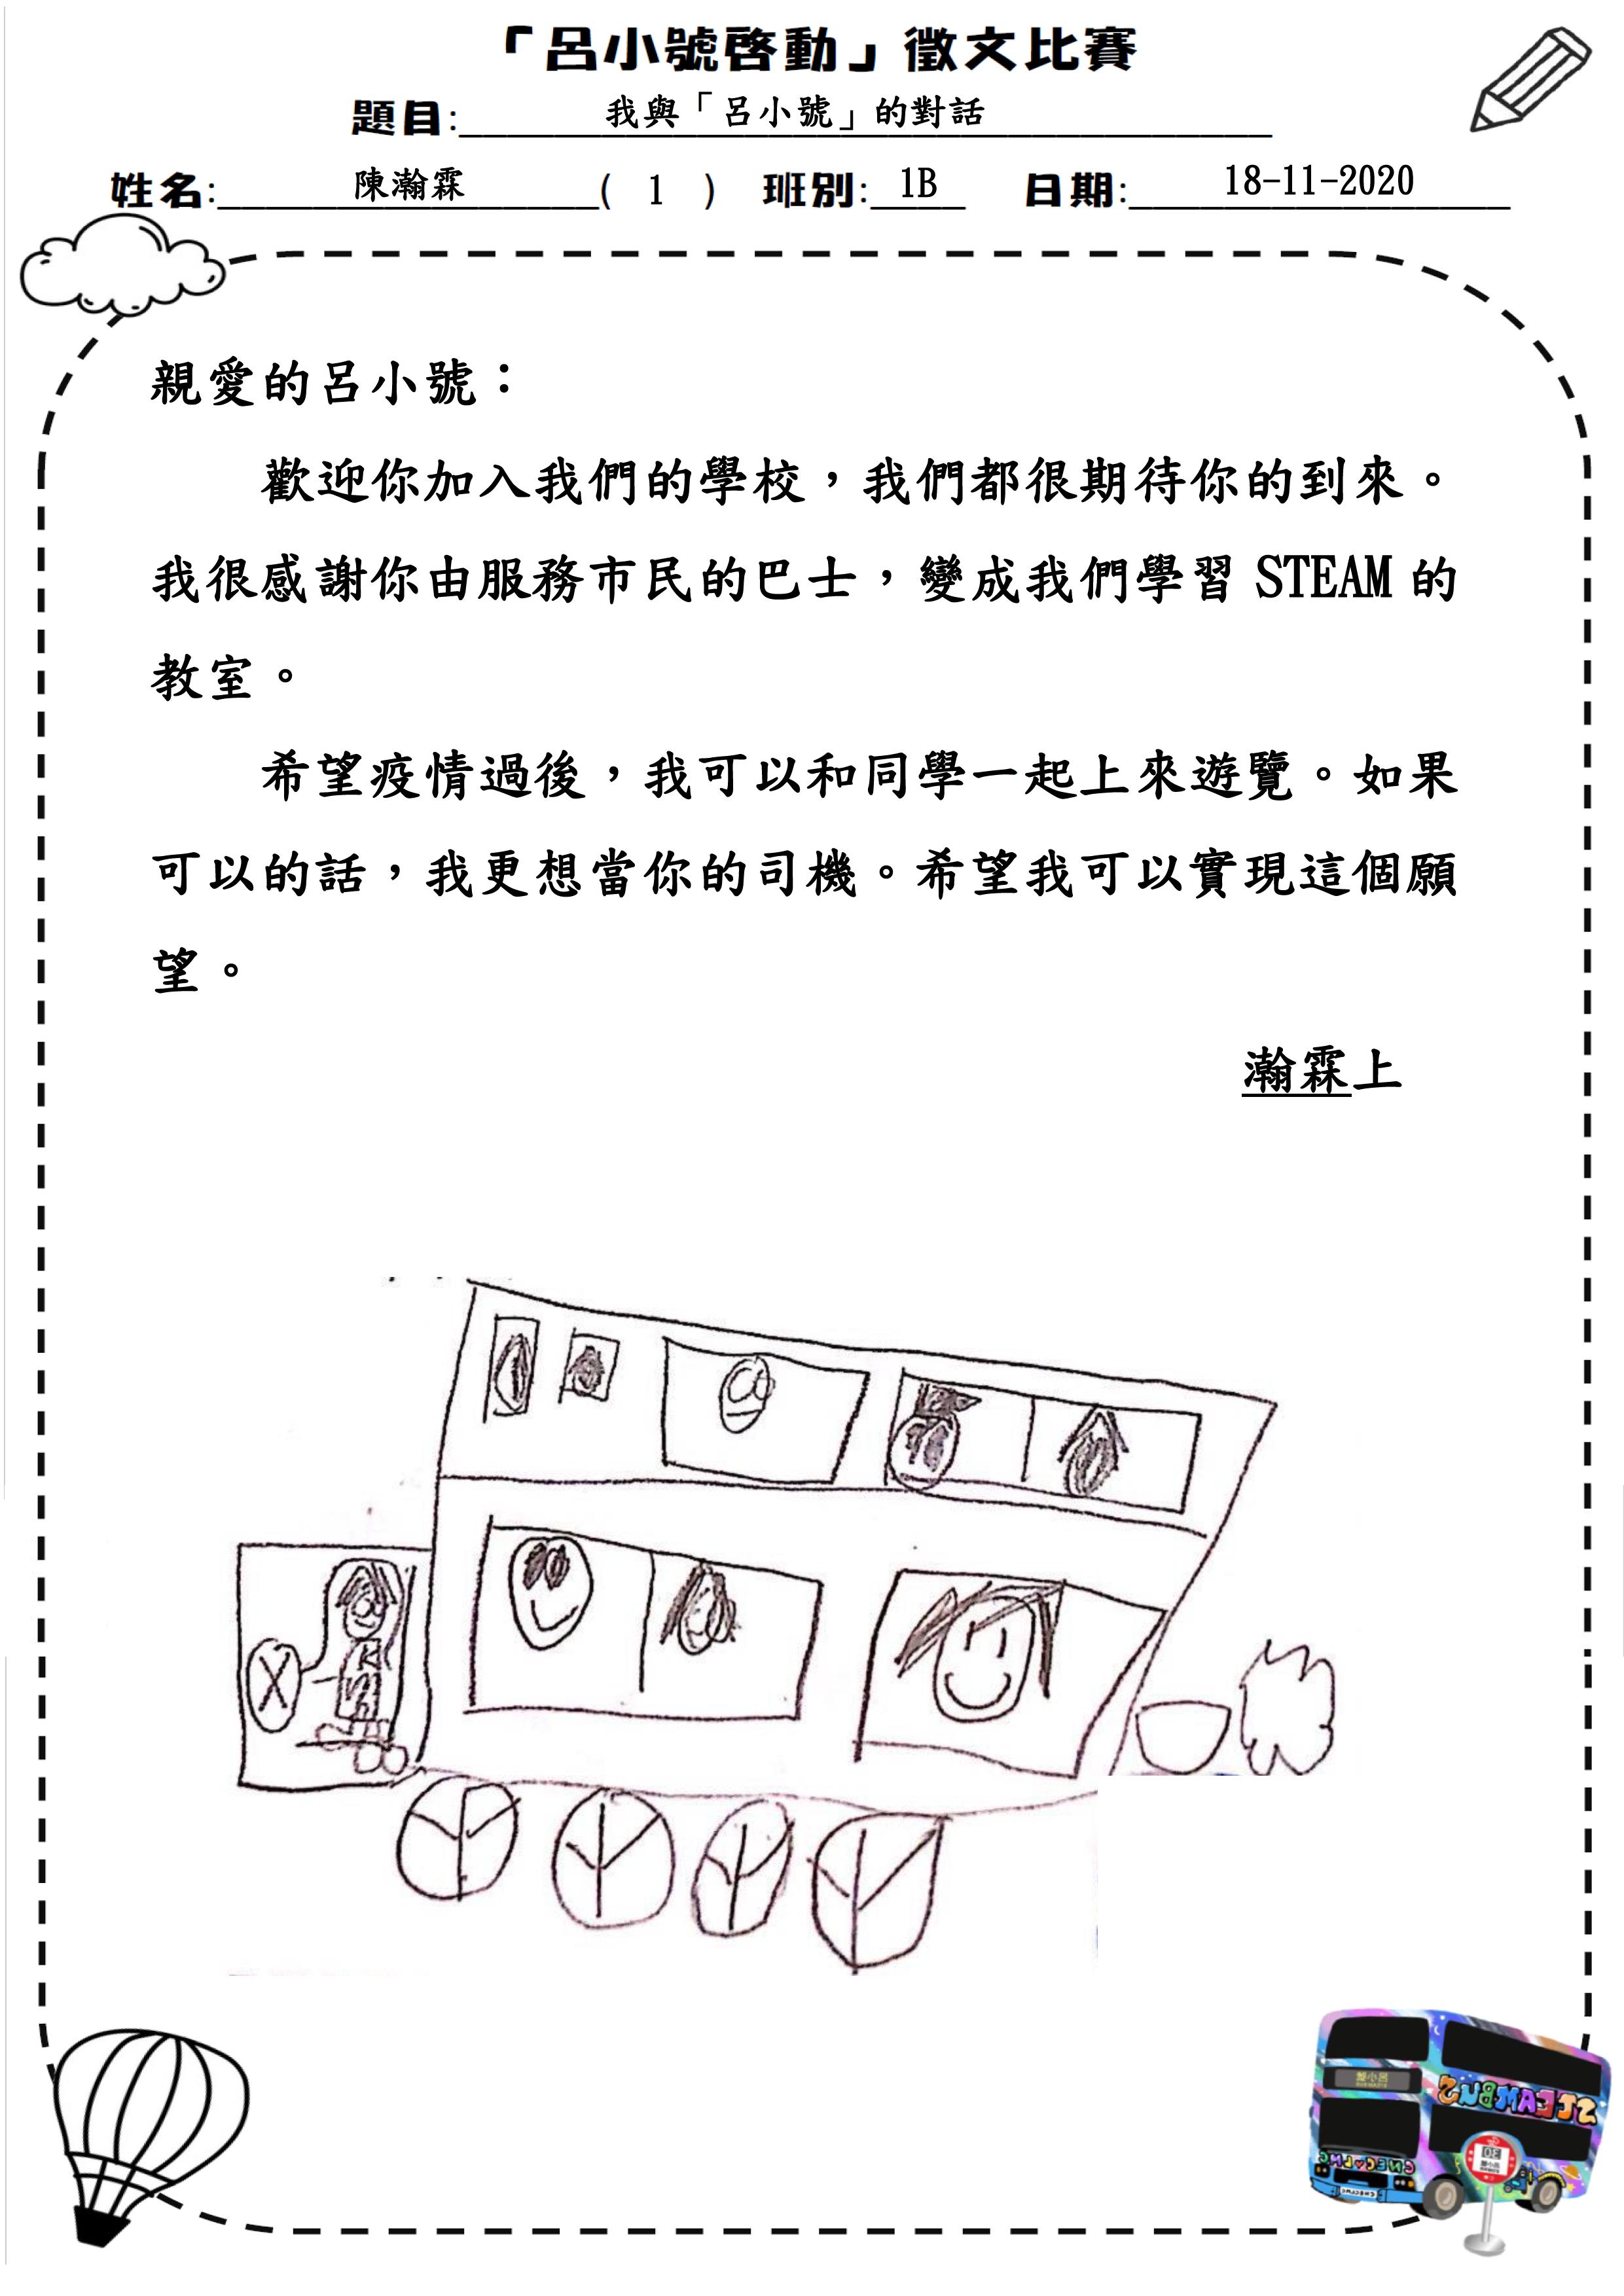 「呂小號啓動」徵文比賽
題目:我與「呂小號」的對話
姓名:陳瀚霖( 1 ) 班別:1B 日期:18-11-2020
親愛的呂小號：
歡迎你加入我們的學校，我們都很期待你的到來。
我很感謝你由服務市民的巴士，變成我們學習 STEAM 的
教室。
希望疫情過後，我可以和同學一起上來遊覽。如果
可以的話，我更想當你的司機。希望我可以實現這個願
望。
瀚霖上
STEAMBUS